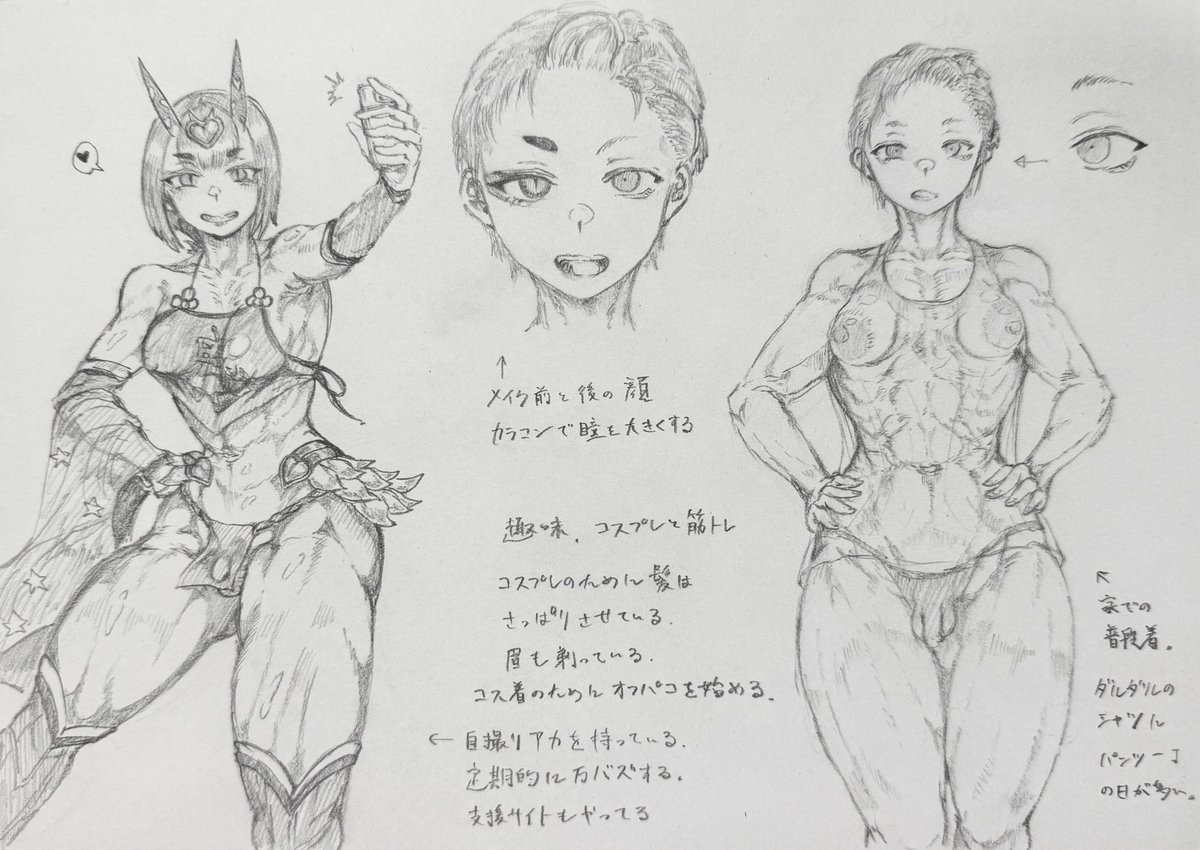 メイク前と後の顔
カラコンで瞳を大きくする
趣味、コスプレと筋トレ
コスプレのために髪は
さっぱりさせている。
眉も剃っている。
コス着のためにオフパコを始める。
自撮りアカを持っている。
定期的に万バズする。
支援サイトもやってる
家での
普段着。
ダルダルの
シャツに
パンツ一丁
の日が多い。